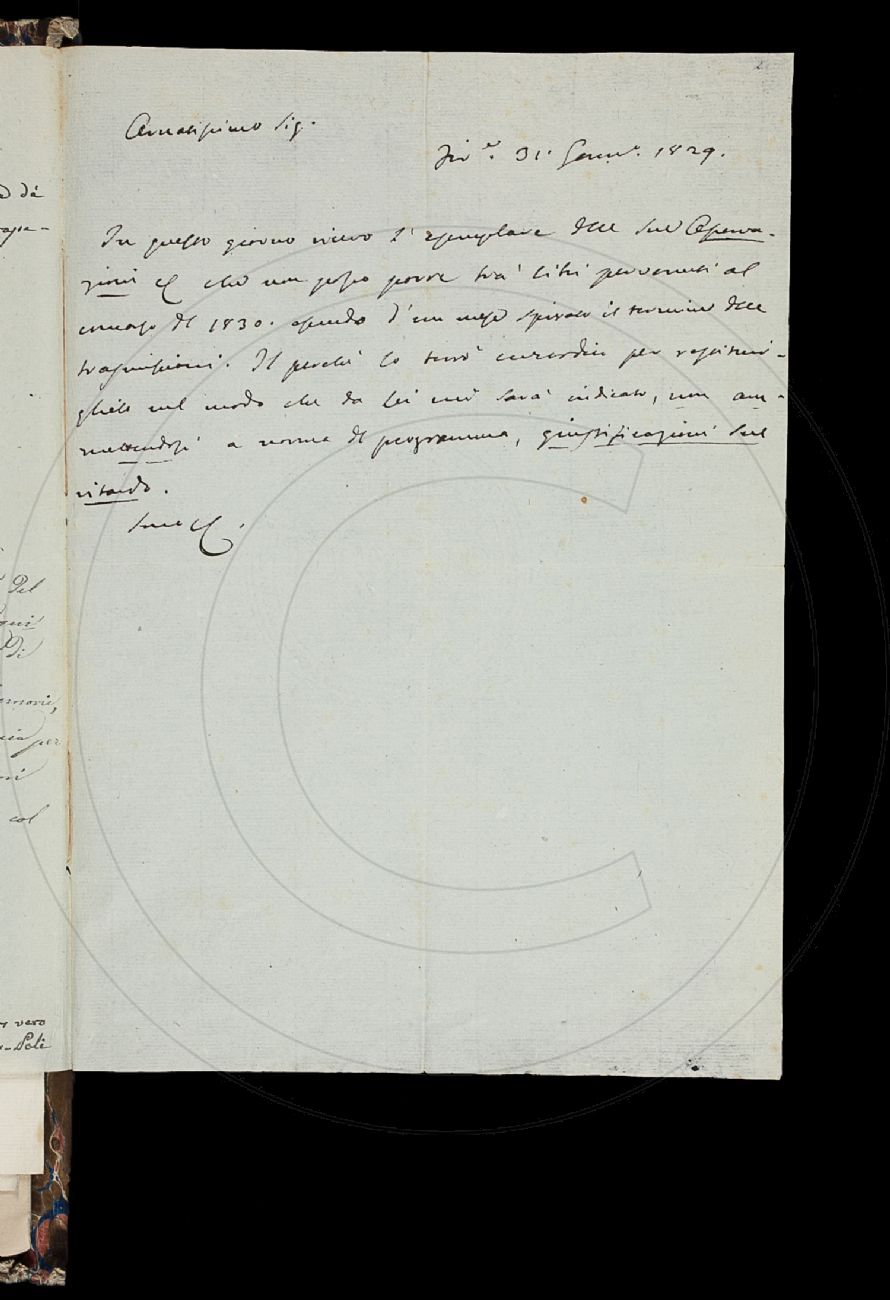 Amatissimo Sig.
Fir.e 31. Genn.o 1829.
In questo giorno ricevo l'esemplare delle sue Osserva-
zioni che non posso porre tra' libri pervenuti al
concorso del 1830. essendo d'un mese spirato il termine delle
trasmissioni. Il perchè lo terrò ond' per restituir-
glielo nel modo che da lei mi sarà indicato, non am-
mettendosi a norma del programma, giustificazioni sul
ritardo.
Sono
dà
Del
Di
per
col
vero